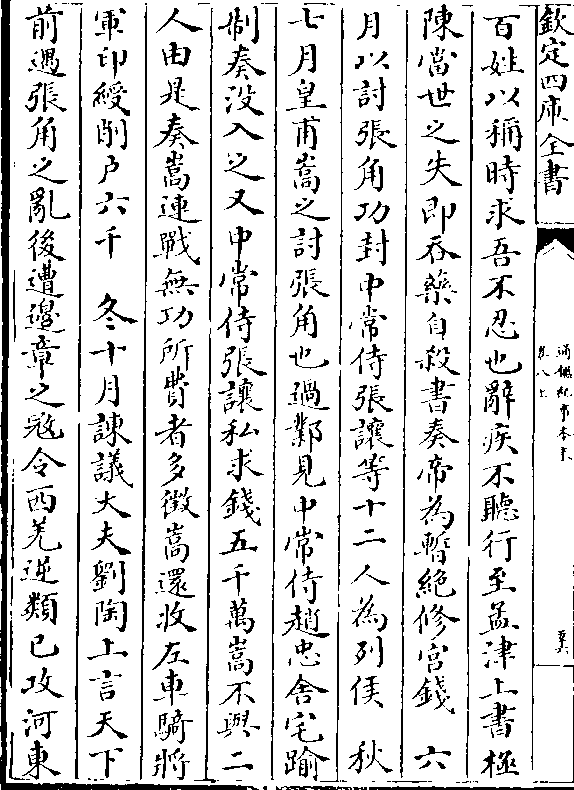 欽定四庫全書
通鑑紀事本末
卷八上
百姓以稱時求吾不忍也辭疾不聽行至孟津上書極
陳當世之失即吞藥自殺書奏帝為暫絶修宫錢　六
月以討張角功封中常侍張讓等十二人為列侯　秋
七月皇甫嵩之討張角也過鄴見中常侍趙忠舍宅踰
制奏没入之又中常侍張讓私求錢五千萬嵩不與二
人由是奏嵩連戰無功所費者多徴嵩還收左車騎將
軍印綬削户六千　冬十月諫議大夫劉陶上言天下
前遇張角之亂後遭邊章之宼令西羌逆類已攻河東